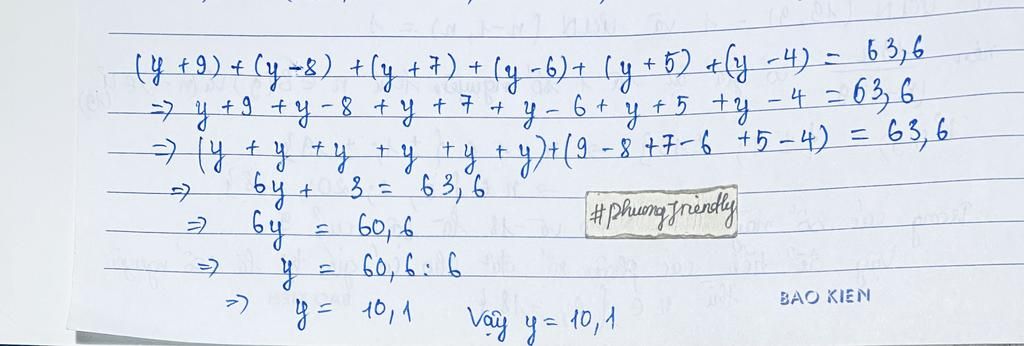 (y + 9) + (y - 8) + (y + 7) + (y - 6) + (y + 5) + (y - 4) = 63,6
=> y + 9 + y - 8 + y + 7 + y - 6 + y + 5 + y - 4 = 63,6
=> (y + y + y + y + y + y) + (9 - 8 + 7 - 6 + 5 - 4) = 63,6
=> 6y + 3 = 63,6
=> 6y = 60,6
#phuongfriendly
=> y = 60,6 : 6
=> y = 10,1 Vậy y = 10,1
BAO KIEN